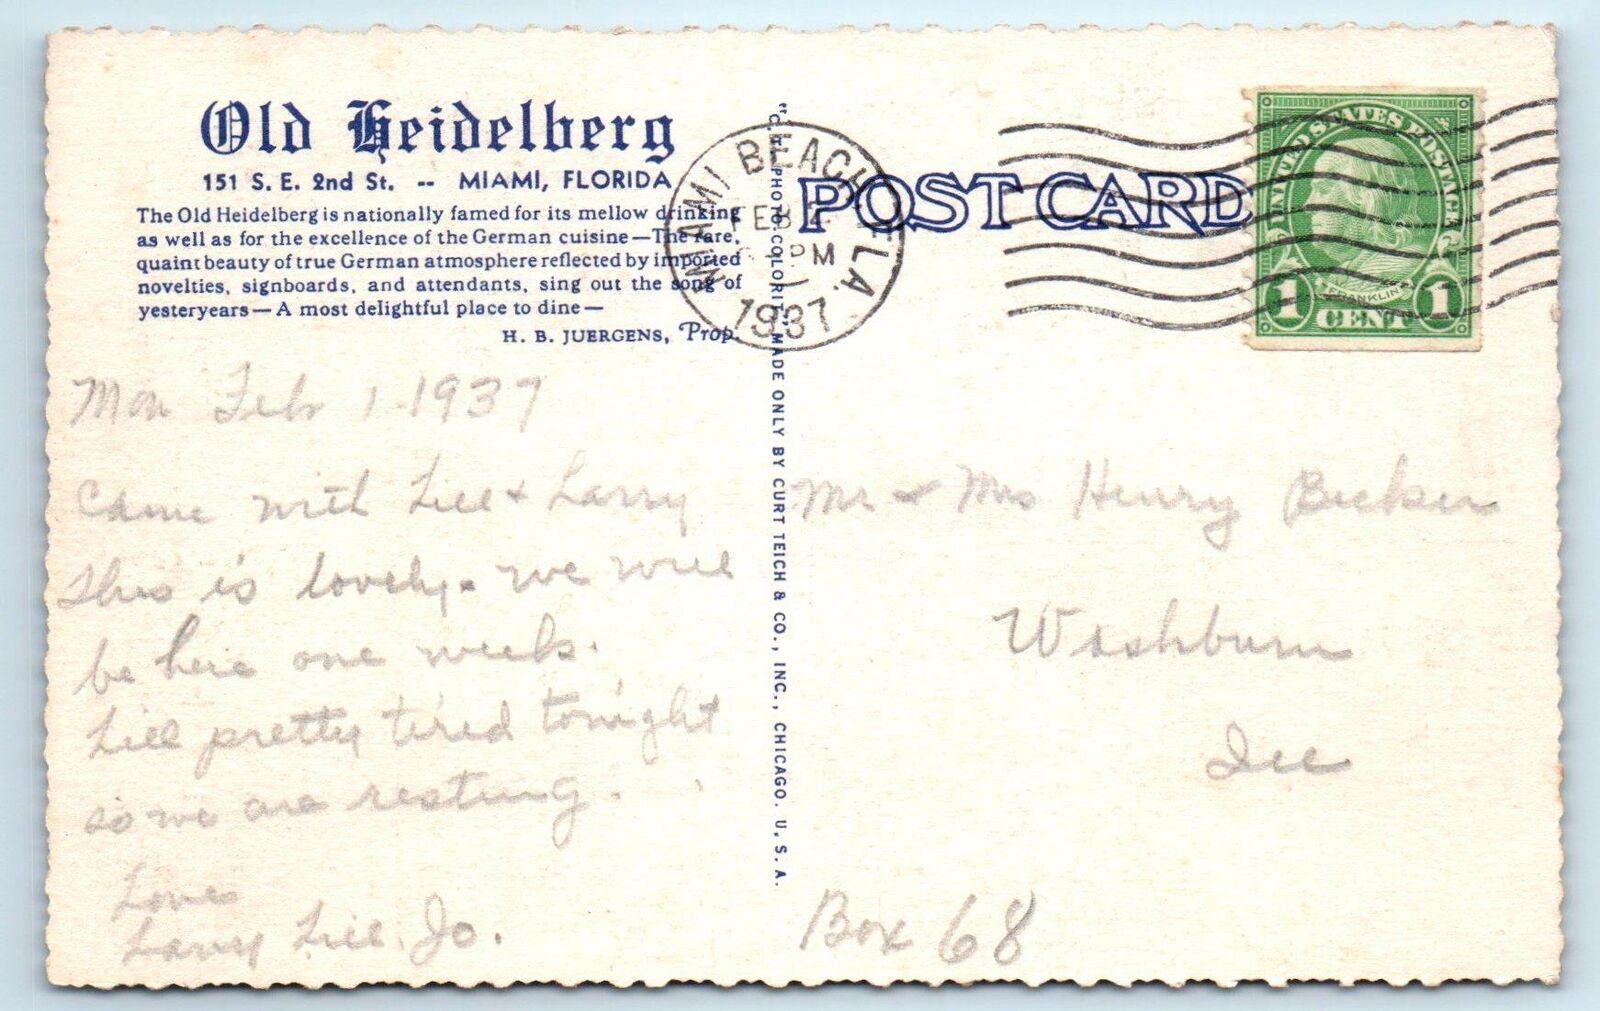 Old Heidelberg
151 S. E. 2nd St. -- MIAMI, FLORIDA
The Old Heidelberg is nationally famed for its mellow drinking
as well as for the excellence of the German cuisine—The rare,
quaint beauty of true German atmosphere reflected by imported
novelties, signboards, and attendants, sing out the song of
yesteryears—A most delightful place to dine—
H. B. JUERGENS, Prop.
Mon Feb 1-1937
Came with Lill & Larry
This is lovely. We will
be here one week.
Lill pretty tired tonight
so we are resting.
Love
Larry Lill, Jo.
"C.T. PHOTO-COLORIT" MADE ONLY BY CURT TEICH & CO., INC., CHICAGO. U. S. A.
POST CARD
MIAMI BEACH, FLA.
FEB
PM
1937
UNITED STATES POSTAGE
FRANKLIN
1 CENT 1
Mr & Mrs Henry Becker
Washburn
Ill
Box 68